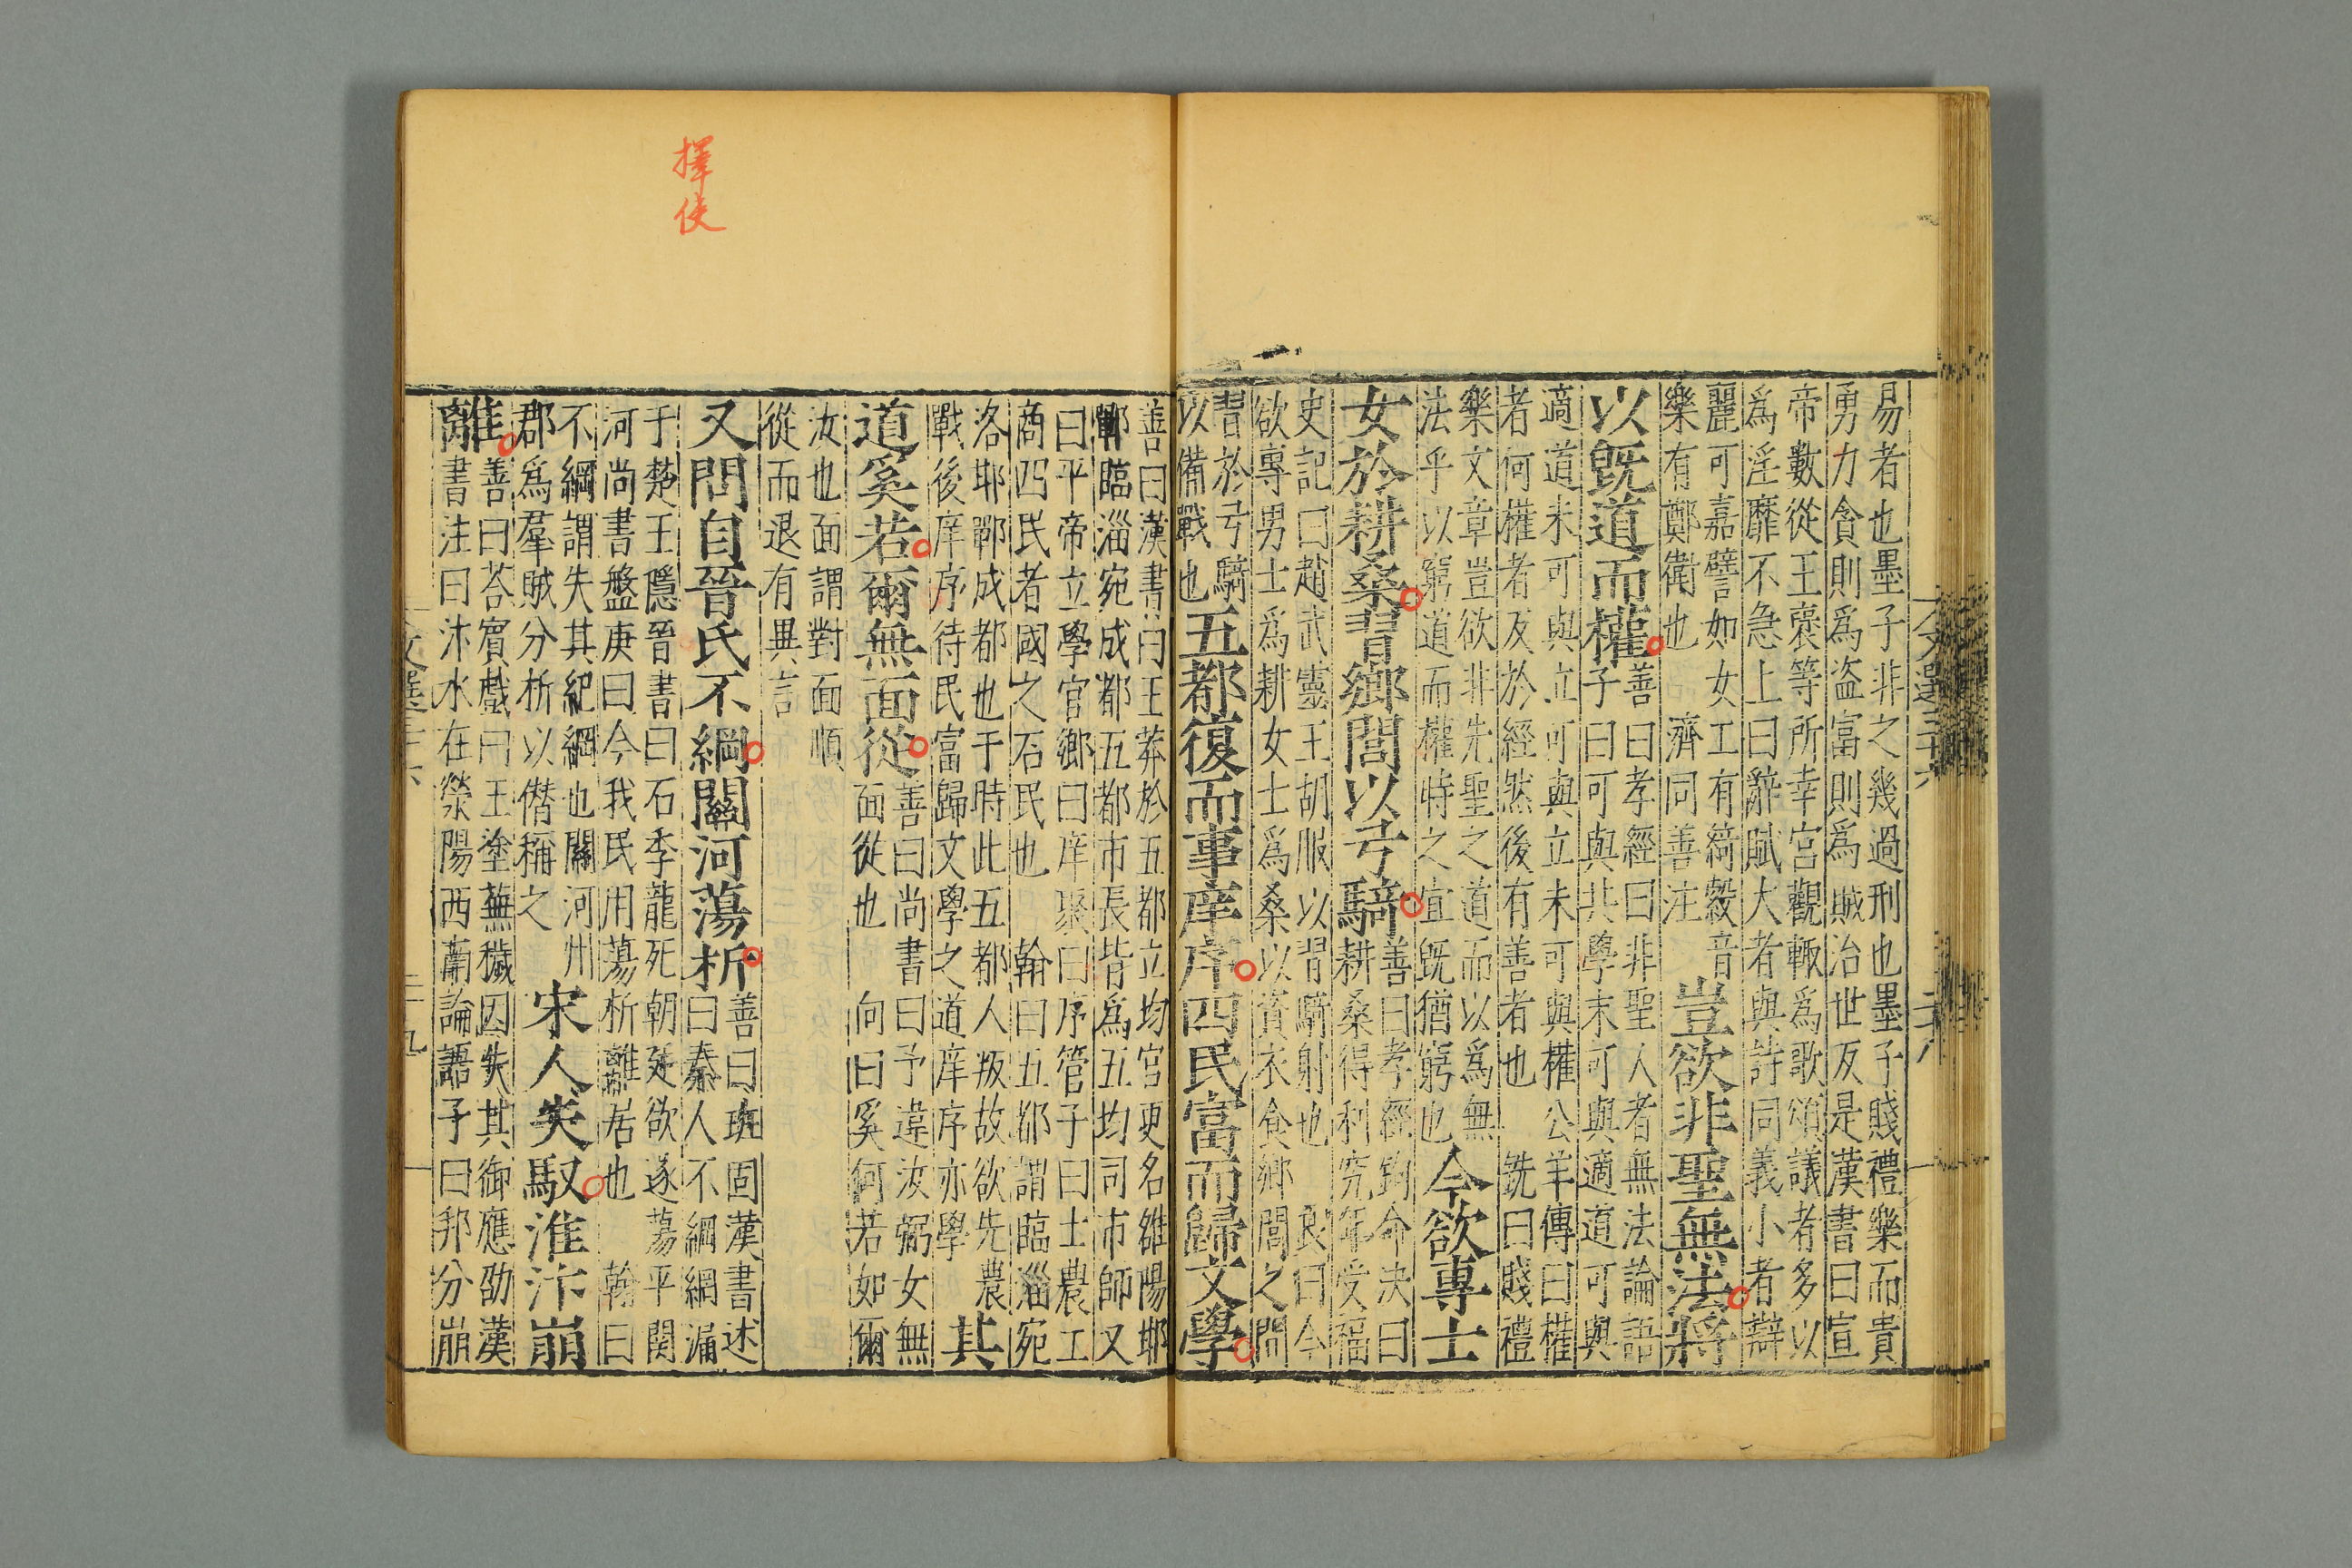 易者也墨子非之幾過刑也墨子賤禮樂而貴
勇力貪則為盗富則為賊治世反是漢書曰宣
帝數從王襃等所幸宮觀輒為歌頌議者多以
為淫靡不急上曰辭賦大者與詩同義小者辯
麗可嘉譬如女工有綺縠音
樂有鄭衛也 濟同善注
豈欲非聖無法將
以旣道而權
善曰孝經曰非聖人者無法論語
子曰可與共學未可與適道可與
適道未可與立可與立未可與權公羊傳曰權
者何權者反於經然後有善者也 銑曰賤禮
樂文章豈欲非先聖之道而以為無
法乎以窮道而權時之宜旣猶窮也
今欲專士
女於耕桑習鄉閭以弓騎
善曰孝經鉤命決曰
耕桑得利究年受福
史記曰趙武靈王胡服以習騎射也 良曰今
欲專男士為耕女士為桑以資衣食鄉閭之間
習於弓騎
以備戰也
五都復而事庠序四民富而歸文學
善曰漢書曰王莽於五都立均官更名雒陽邯
鄲臨淄宛成都五都市長皆為五均司市師又
曰平帝立學官鄉曰庠聚曰序管子曰士農工
商四民者國之石民也 翰曰五都謂臨淄宛
洛邯鄲成都也于時此五都人叛故欲先農
戰後庠序待民富歸文學之道庠序亦學
其
道奚若爾無面從
善曰尚書曰予違汝弼女無
面從也 向曰奚何若如爾
汝也面謂對面順
從而退有異言
又問自晉氏不綱關河蕩析
善曰班固漢書述
曰秦人不綱綱漏
于楚王隱晉書曰石季龍死朝廷欲遂蕩平關
河尚書盤庚曰今我民用蕩析離居也 翰曰
不綱謂失其紀綱也關河州
郡為羣賊分析以僭稱之
宋人失馭淮汴崩
離
善曰荅賓戲曰王塗蕪穢因失其御應劭漢
書注曰汴水在滎陽西蕭論語子曰邦分崩
擇使